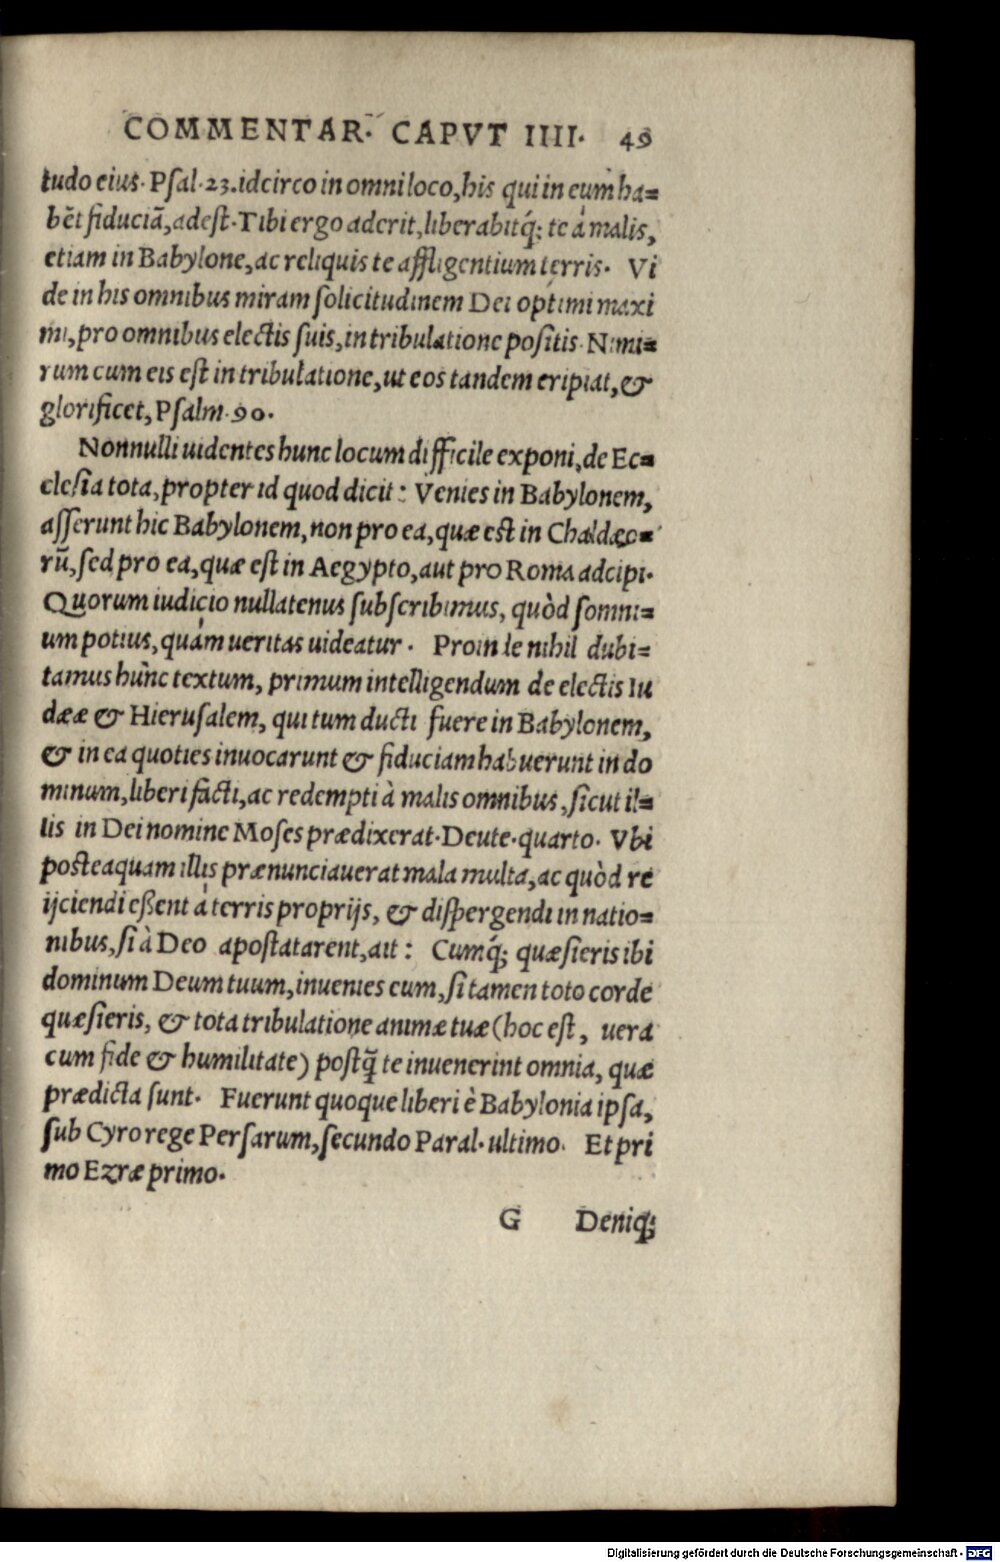 COMMENTAR. CAPVT IIII. 49
tudo eius. Psal. 23. idcirco in omni loco, his qui in eum ha=
bẽt fiduciã, adest. Tibi ergo aderit, liberabitq́; te à malis,
etiam in Babylone, ac reliquis te affligentium terris. Vi
de in his omnibus miram solicitudinem Dei optimi maxi
mi, pro omnibus electis suis, in tribulatione positis. Nimi=
rum cum eis est in tribulatione, ut eos tandem eripiat, &
glorificet, Psalm. 90.
Nonnulli uidentes hunc locum difficile exponi, de Ec=
clesia tota, propter id quod dicit: Venies in Babylonem,
asserunt hic Babylonem, non pro ea, quæ est in Chaldæo=
rũ, sed pro ea, quæ est in Aegypto, aut pro Roma adcipi.
Quorum iudicio nullatenus subscribimus, quòd somni=
um potius, quàm ueritas uideatur. Proinde nihil dubi=
tamus hunc textum, primum intelligendum de electis Iu
dææ & Hierusalem, qui tum ducti fuere in Babylonem,
& in ea quoties inuocarunt & fiduciam habuerunt in do
minum, liberi facti, ac redempti à malis omnibus, sicut il=
lis in Dei nomine Moses prædixerat. Deute. quarto. Vbi
posteaquam illis prænunciauerat mala multa, ac quòd re
ijciendi eßent à terris proprijs, & dispergendi in natio=
nibus, si à Deo apostatarent, ait: Cumq́; quæsieris ibi
dominum Deum tuum, inuenies eum, si tamen toto corde
quæsieris, & tota tribulatione animæ tuæ (hoc est, uera
cum fide & humilitate) postq̃ te inuenerint omnia, quæ
prædicta sunt. Fuerunt quoque liberi è Babylonia ipsa,
sub Cyro rege Persarum, secundo Paral. ultimo. Et pri
mo Ezræ primo.
G Deniq;
Digitalisierung gefördert durch die Deutsche Forschungsgemeinschaft - DFG